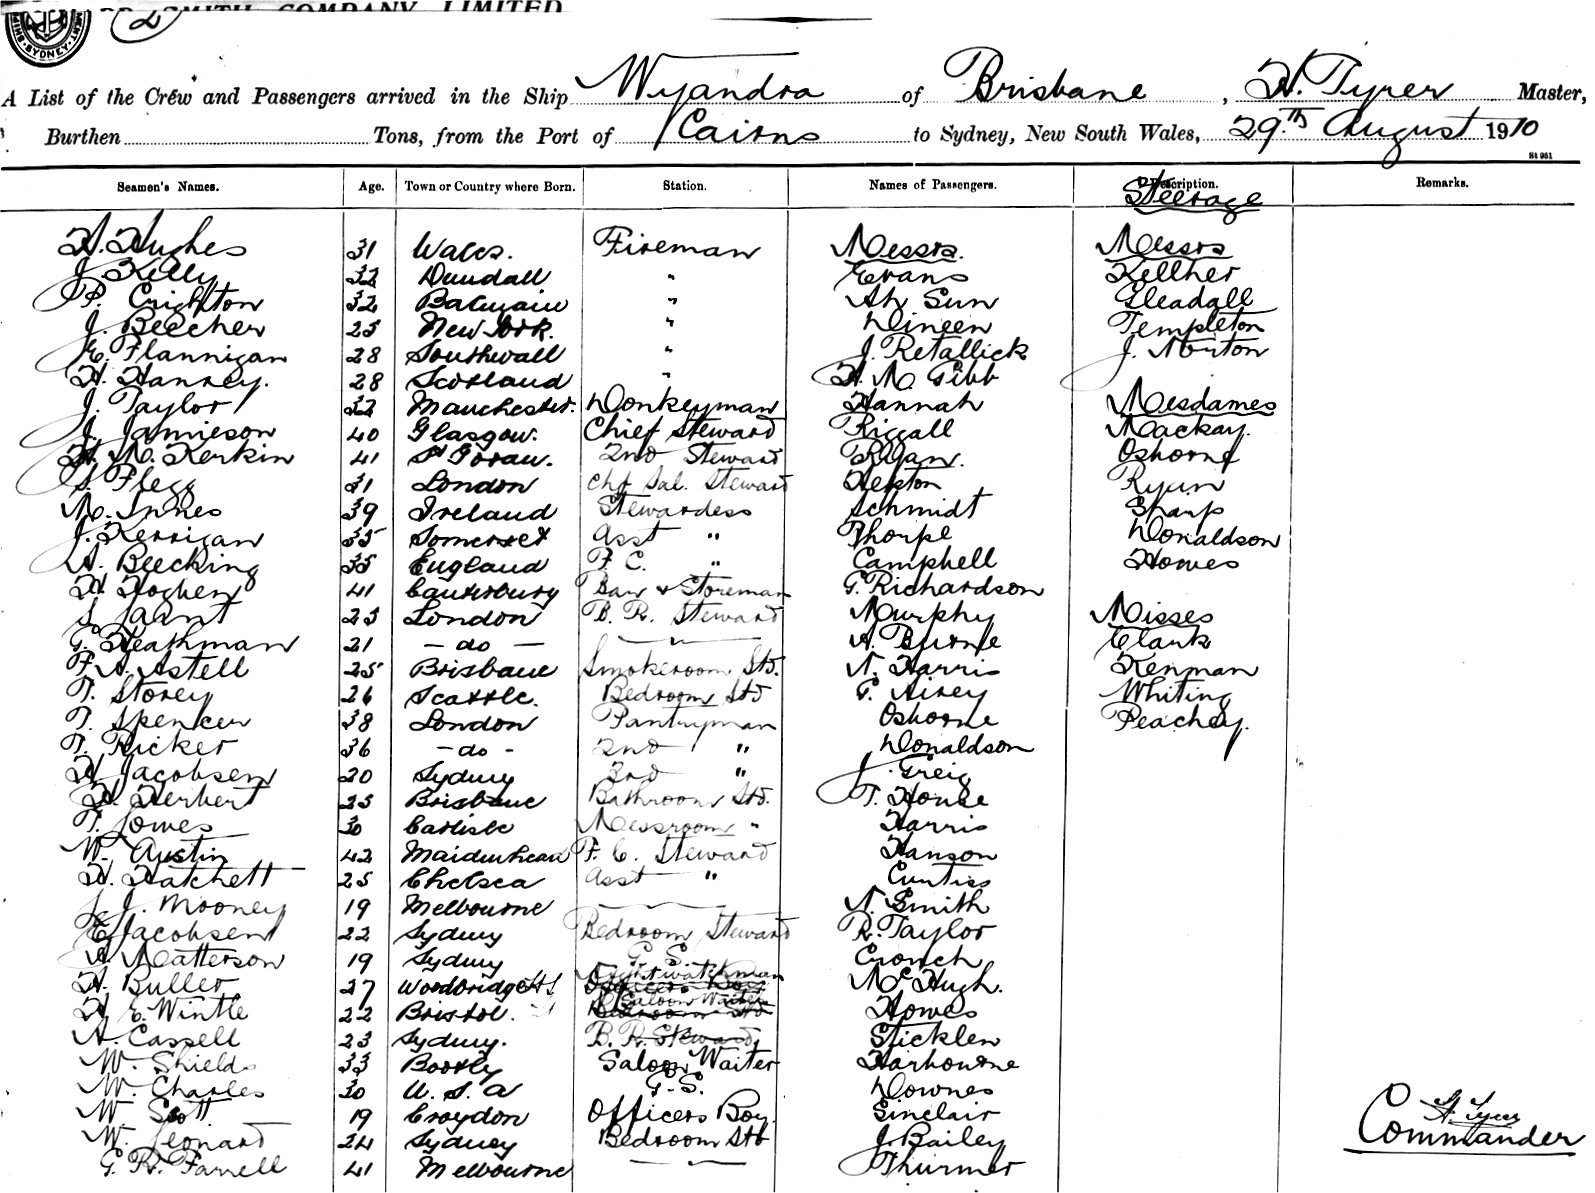 SMITH COMPANY LIMITED
SYDNEY
2
A List of the Crew and Passengers arrived in the Ship Wyandra of Brisbane, H. Tyrer Master,
Burthen Tons, from the Port of Cairns to Sydney, New South Wales, 29th August 1910
St 951
Seamen's Names. Age. Town or Country where Born. Station. Names of Passengers. Description. Remarks.
Steerage
H. Hughes 31 Wales. Fireman Messrs. Messrs
J. Kelly 32 Dundalk " Evans Kellher
P. Crighton 32 Balmain " Ah Sun Gleadall
J. Beecher 25 New York. " Dineen Templeton
E. Flannigan 28 Southwall " J. Retallick J. Norton
H. Hanney. 28 Scotland " H. M. Gibb
J. Taylor 32 Manchester. Donkeyman Hannah Mesdames
J. Jamieson 40 Glasgow. Chief Steward Riggall Mackay.
H. M. Kerkin 41 2nd Steward Ryan. Osborne
S. Flegg 31 London Chf Sal. Steward Hepton Ryun
M. Innes 39 Ireland Stewardess Schmidt Sharp
J. Kerrigan 35 Somerset Asst " Thorpe Donaldson
A. Beecking 35 England F. C. " Campbell Howes
H. Hoghen 41 Canterbury Bar & Storeman G. Richardson
S. Jarnt 25 London B. R. Steward Murphy Misses
G. Heathman 21 - do - " A. Byrne Clark
F. A. Astell 25 Brisbane Smokeroom Std. N. Harris Kenman
T. Storey 26 Seattle. Bedroom Std G. Airey Whiting
T. Spencer 38 London Pantryman Osborne Peachey.
T. Ricker 36 - do - 2nd " Donaldson
H. Jacobsen 20 Sydney 3rd " J. Greig
H. Herbert 25 Brisbane Bathroom Std. T. House
T. Jowes 30 Carlisle Messroom " Harris
W. Austin 42 Maidenhead F. C. Steward Hanson
H. Hatchett 25 Chelsea Asst " Curtiss
J. Mooney 19 Melbourne N. Smith
E. Jacobsen 22 Sydney Bedroom Steward R. Taylor
A. Matterson 19 Sydney G. S. Crouch
H. Buller 27 Woodbridge Nightwatchman Officers Boy McHugh.
H. E. Wintle 22 Bristol. Saloon Waiter Bedroom Std Howes
A. Cassell 23 Sydney. B. R. Steward Sticklen
W. Shields 33 Bootly Saloon Waiter Harbourne
W. Charles 30 U. S. A G. S. Downes
W. Scott 19 Croydon Officers Boy Sinclair
W. Leonard 24 Sydney Bedroom Std J. Bailey
G. R. Farrell 41 Melbourne Thurmer
H. Tyrer
Commander